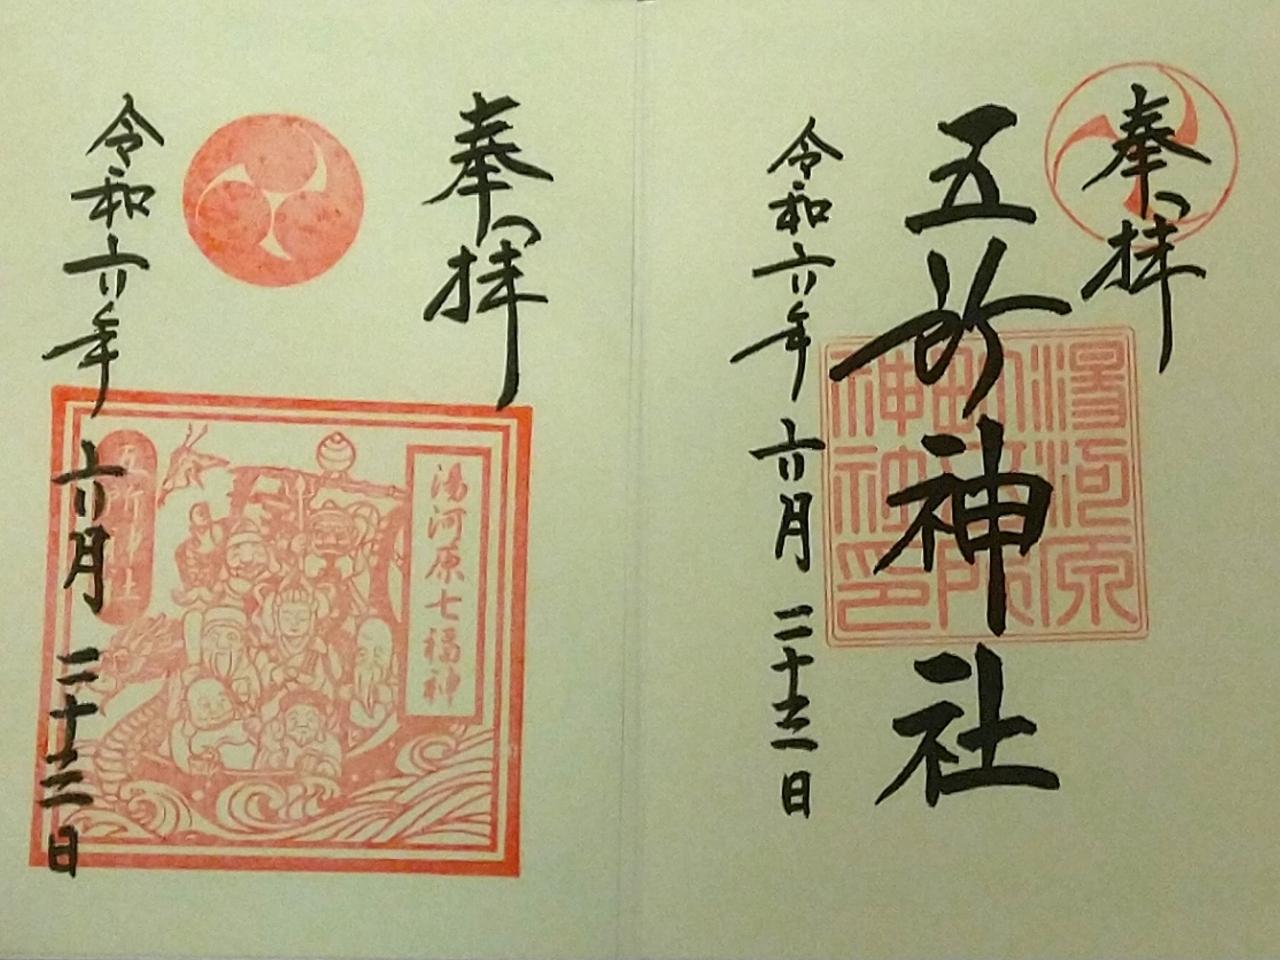 奉拝
五所神社
湯河原
町五所
神社印
令和六年 六月 二十三日
奉拝
湯河原七福神
五所神社
令和六年 六月 二十三日